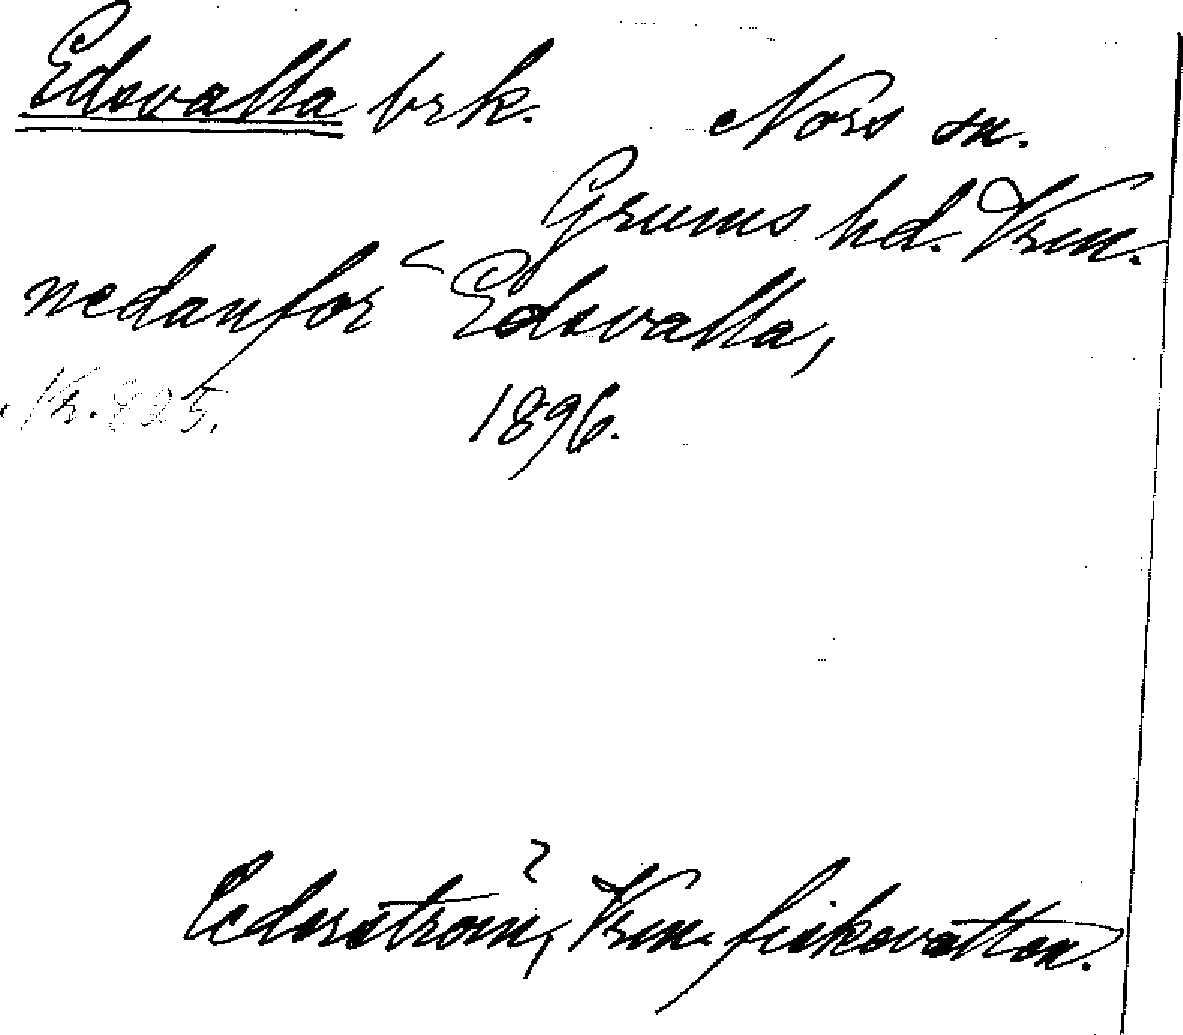 Edsvalla brk. Nors sn.
Grums hd. Vrm.
nedanför Edsvalla,
Nr. 825. 1896.
Cederström, Vrm. fiskevatten.